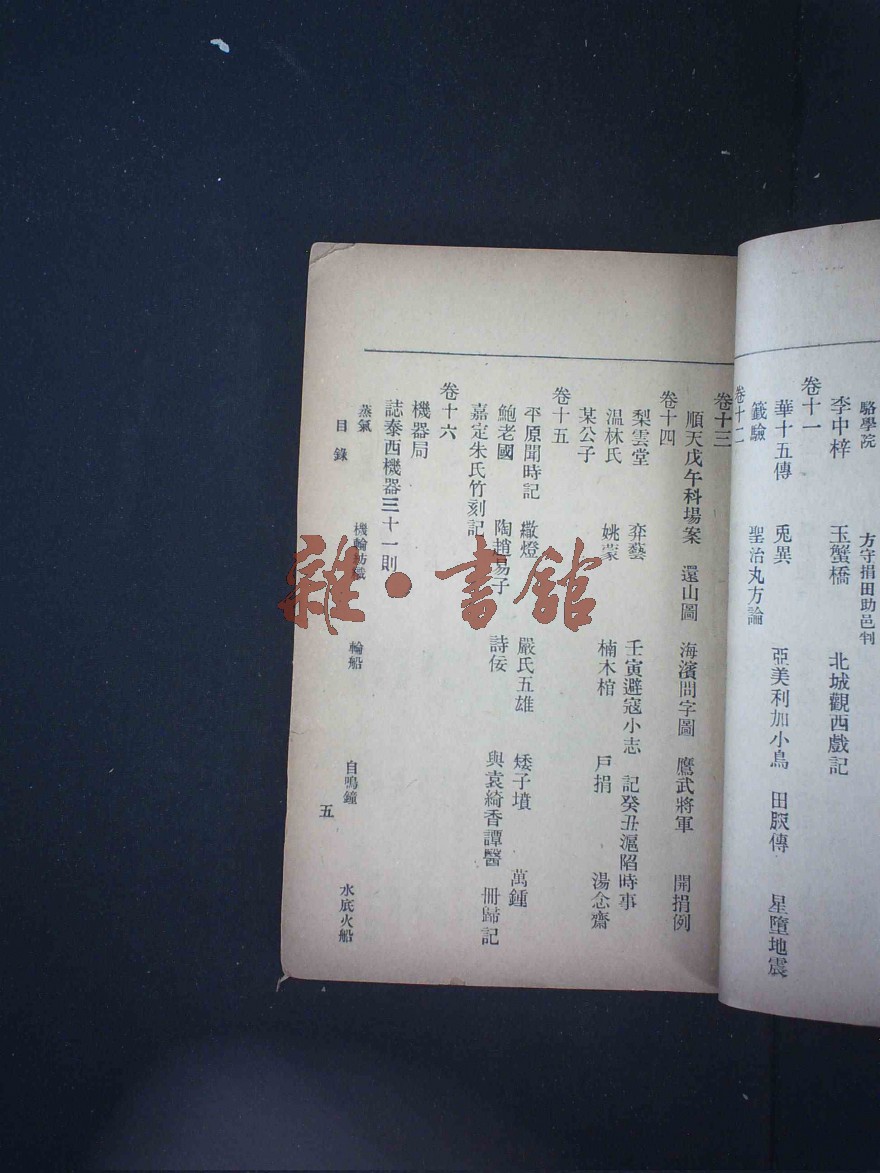 駱學院　方守捐田助邑判
李中梓　玉蟹橋　北城觀西戲記
卷十一
華十五傳　兎異　亞美利加小鳥　田䏬傳　星墮地震
籤驗　聖治丸方論
卷十二
卷十三
順天戊午科場案　還山圖　海濱問字圖　鷹武將軍　開捐例
卷十四
梨雲堂　弈藝　壬寅避寇小志　記癸丑滬陷時事
温林氏　姚蒙　楠木棺　戶捐　湯念齋
某公子
卷十五
平原聞時記　繖燈　嚴氏五雄　矮子墳　萬鍾
鮑老國　陶趙昜子　詩佞　與袁綺香譚醫　冊歸記
嘉定朱氏竹刻記
卷十六
機器局
誌泰西機器三十一則
蒸氣　機輪紡織　輪船　自鳴鐘　水底火船
目錄　五
雜·書館